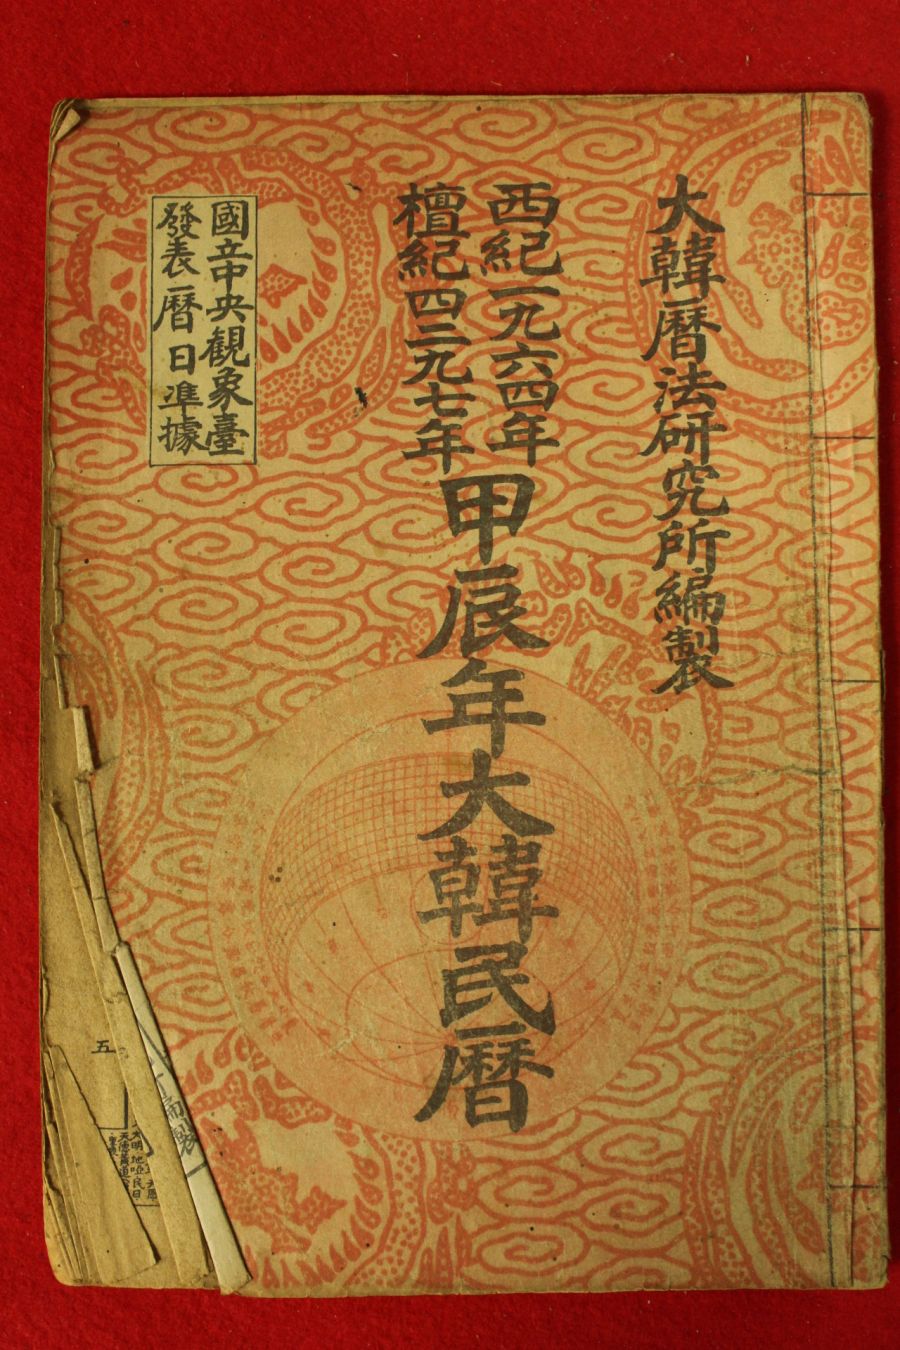 大韓曆法研究所編製
西紀一九六四年
檀紀四二九七年
甲辰年大韓民曆
國立中央観象臺
發表曆日準據
五
編製